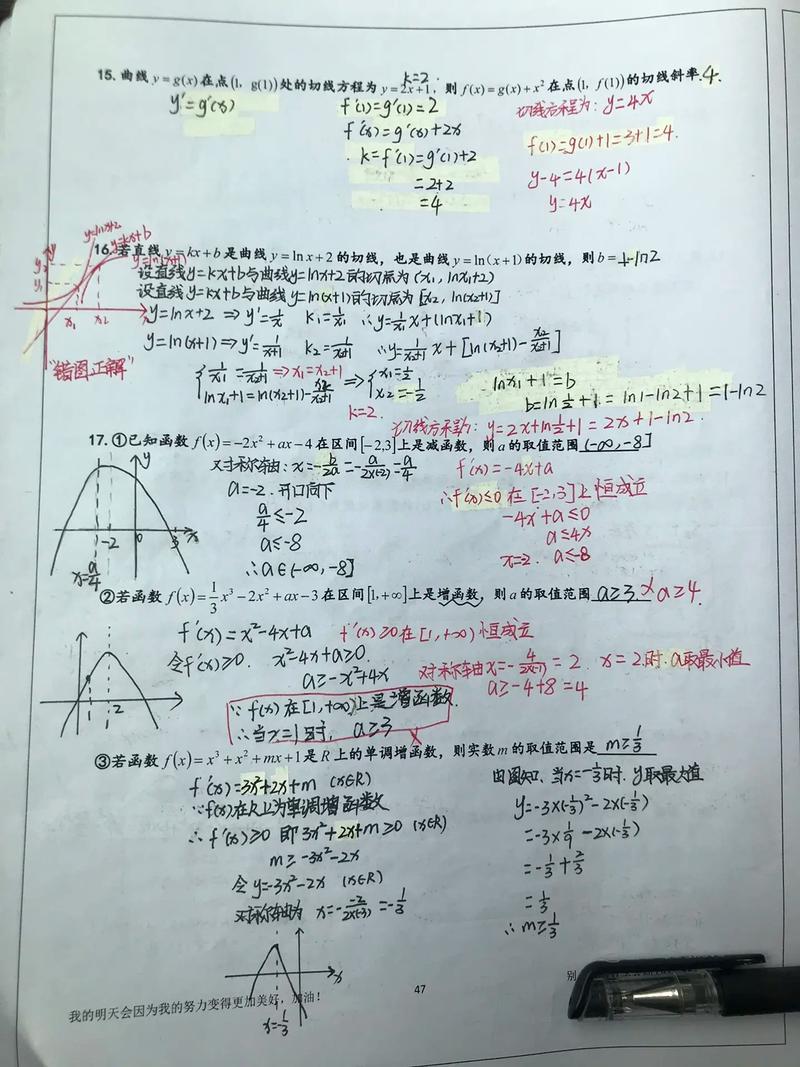 15.曲线 y = g(x) 在点(1, g(1))处的切线方程为 y = 2x+1, 则 f(x) = g(x) + x² 在点(1, f(1))的切线斜率 4.
k=2
y'=g'(x)
f'(1)=g'(1)=2
f'(x)=g'(x)+2x
k=f'(1)=g'(1)+2
=2+2
=4
切线方程为: y=4x
f(1)=g(1)+1=3+1=4.
y-4=4(x-1)
y=4x
y=lnx+2
y=kx+b
y=ln(x+1)
y
y₂
y₁
x₁ x₂ x
"错图正解"
16.若直线 y = kx+b 是曲线 y = ln x+2 的切线，也是曲线 y = ln(x+1) 的切线，则 b = 1-ln2
设直线y=kx+b与曲线y=lnx+2的切点为(x₁, lnx₁+2)
设直线y=kx+b与曲线y=ln(x+1)的切点为[x₂, ln(x₂+1)]
y=lnx+2 ⇒ y'=1/x k₁=1/x₁ ∴y=1/x₁ x+(lnx₁+1)
y=ln(x+1) ⇒ y'=1/(x+1) k₂=1/(x₂+1) ∴y=1/(x₂+1) x+[ln(x₂+1)-x₂/(x₂+1)]
{1/x₁=1/(x₂+1) ⇒x₁=x₂+1
lnx₁+1=ln(x₂+1)-x₂/(x₂+1)
⇒ {x₁=1/2
x₂=-1/2
k=2.
lnx₁+1=b
b=ln1/2+1=ln1-ln2+1=1-ln2
切线方程为: y=2x+ln1/2+1=2x+1-ln2.
17.①已知函数 f(x) = -2x² + ax - 4 在区间[-2,3]上是减函数，则 a 的取值范围 (-∞,-8]
对称轴: x=-b/2a=-a/2×(-2)=a/4
a=-2.开口向下
a/4≤-2
a≤-8
∴a∈(-∞,-8]
f'(x)=-4x+a
∴f'(x)≤0在[-2,3]上恒成立
-4x+a≤0
a≤4x
x=2. a≤-8
y
-2 0 3 x
x=a/4
②若函数 f(x) = 1/3 x³ - 2x² + ax - 3 在区间[1,+∞]上是增函数，则 a 的取值范围 a≥3. × a≥4.
f'(x)=x²-4x+a
f'(x)≥0在[1,+∞)恒成立
令f'(x)≥0. x²-4x+a≥0.
a≥-x²+4x
∵f(x)在[1,+∞)上是增函数.
∴当x=1时, a≥3 ×
对称轴x=-4/2×(-1)=2. x=2.时.a取最小值
a≥-4+8=4
2
③若函数 f(x) = x³ + x² + mx + 1 是 R 上的单调增函数，则实数 m 的取值范围是 m≥1/3
f'(x)=3x²+2x+m (x∈R)
∵f(x)在R上为单调增函数
∴f'(x)≥0 即3x²+2x+m≥0 (x∈R)
m≥-3x²-2x
令y=-3x²-2x (x∈R)
对称轴为 x=-(-2)/2×(-3)=-1/3
x
x=-1/3
由图知, 当x=-1/3时.y取最大值
y=-3×(-1/3)²-2×(-1/3)
=-3×1/9-2×(-1/3)
=-1/3+2/3
=1/3
∴m≥1/3
47
别
我的明天会因为我的努力变得更加美好，加油！